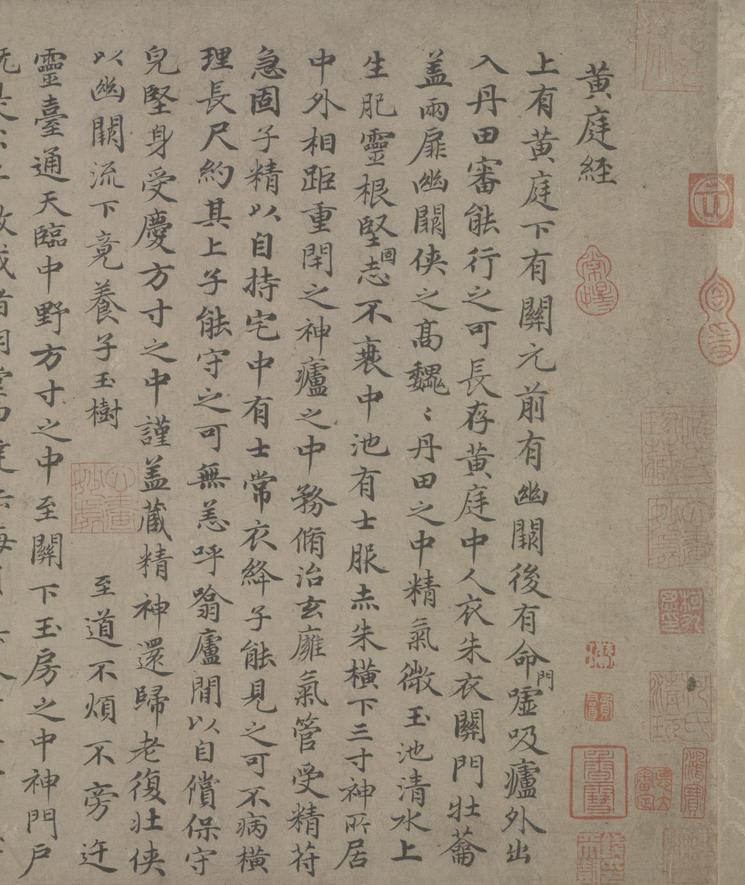 黄庭経
上有黄庭下有關元前有幽闕後有命門噓吸廬外出
入丹田審能行之可長存黄庭中人衣朱衣關門壯蘥
盖兩扉幽闕俠之髙巍〻丹田之中精氣微玉池清水上
生肥靈根堅固志不衰中池有士服赤朱橫下三寸神所居
中外相距重閇之神廬之中務脩治玄廱氣管受精苻
急固子精以自持宅中有士常衣絳子能見之可不病橫
理長尺約其上子能守之可無恙呼翕廬間以自償保守
皃堅身受慶方寸之中謹盖藏精神還歸老復壯俠
以幽闕流下竟養子玉樹至道不煩不旁迕
靈臺通天臨中野方寸之中至關下玉房之中神門戶